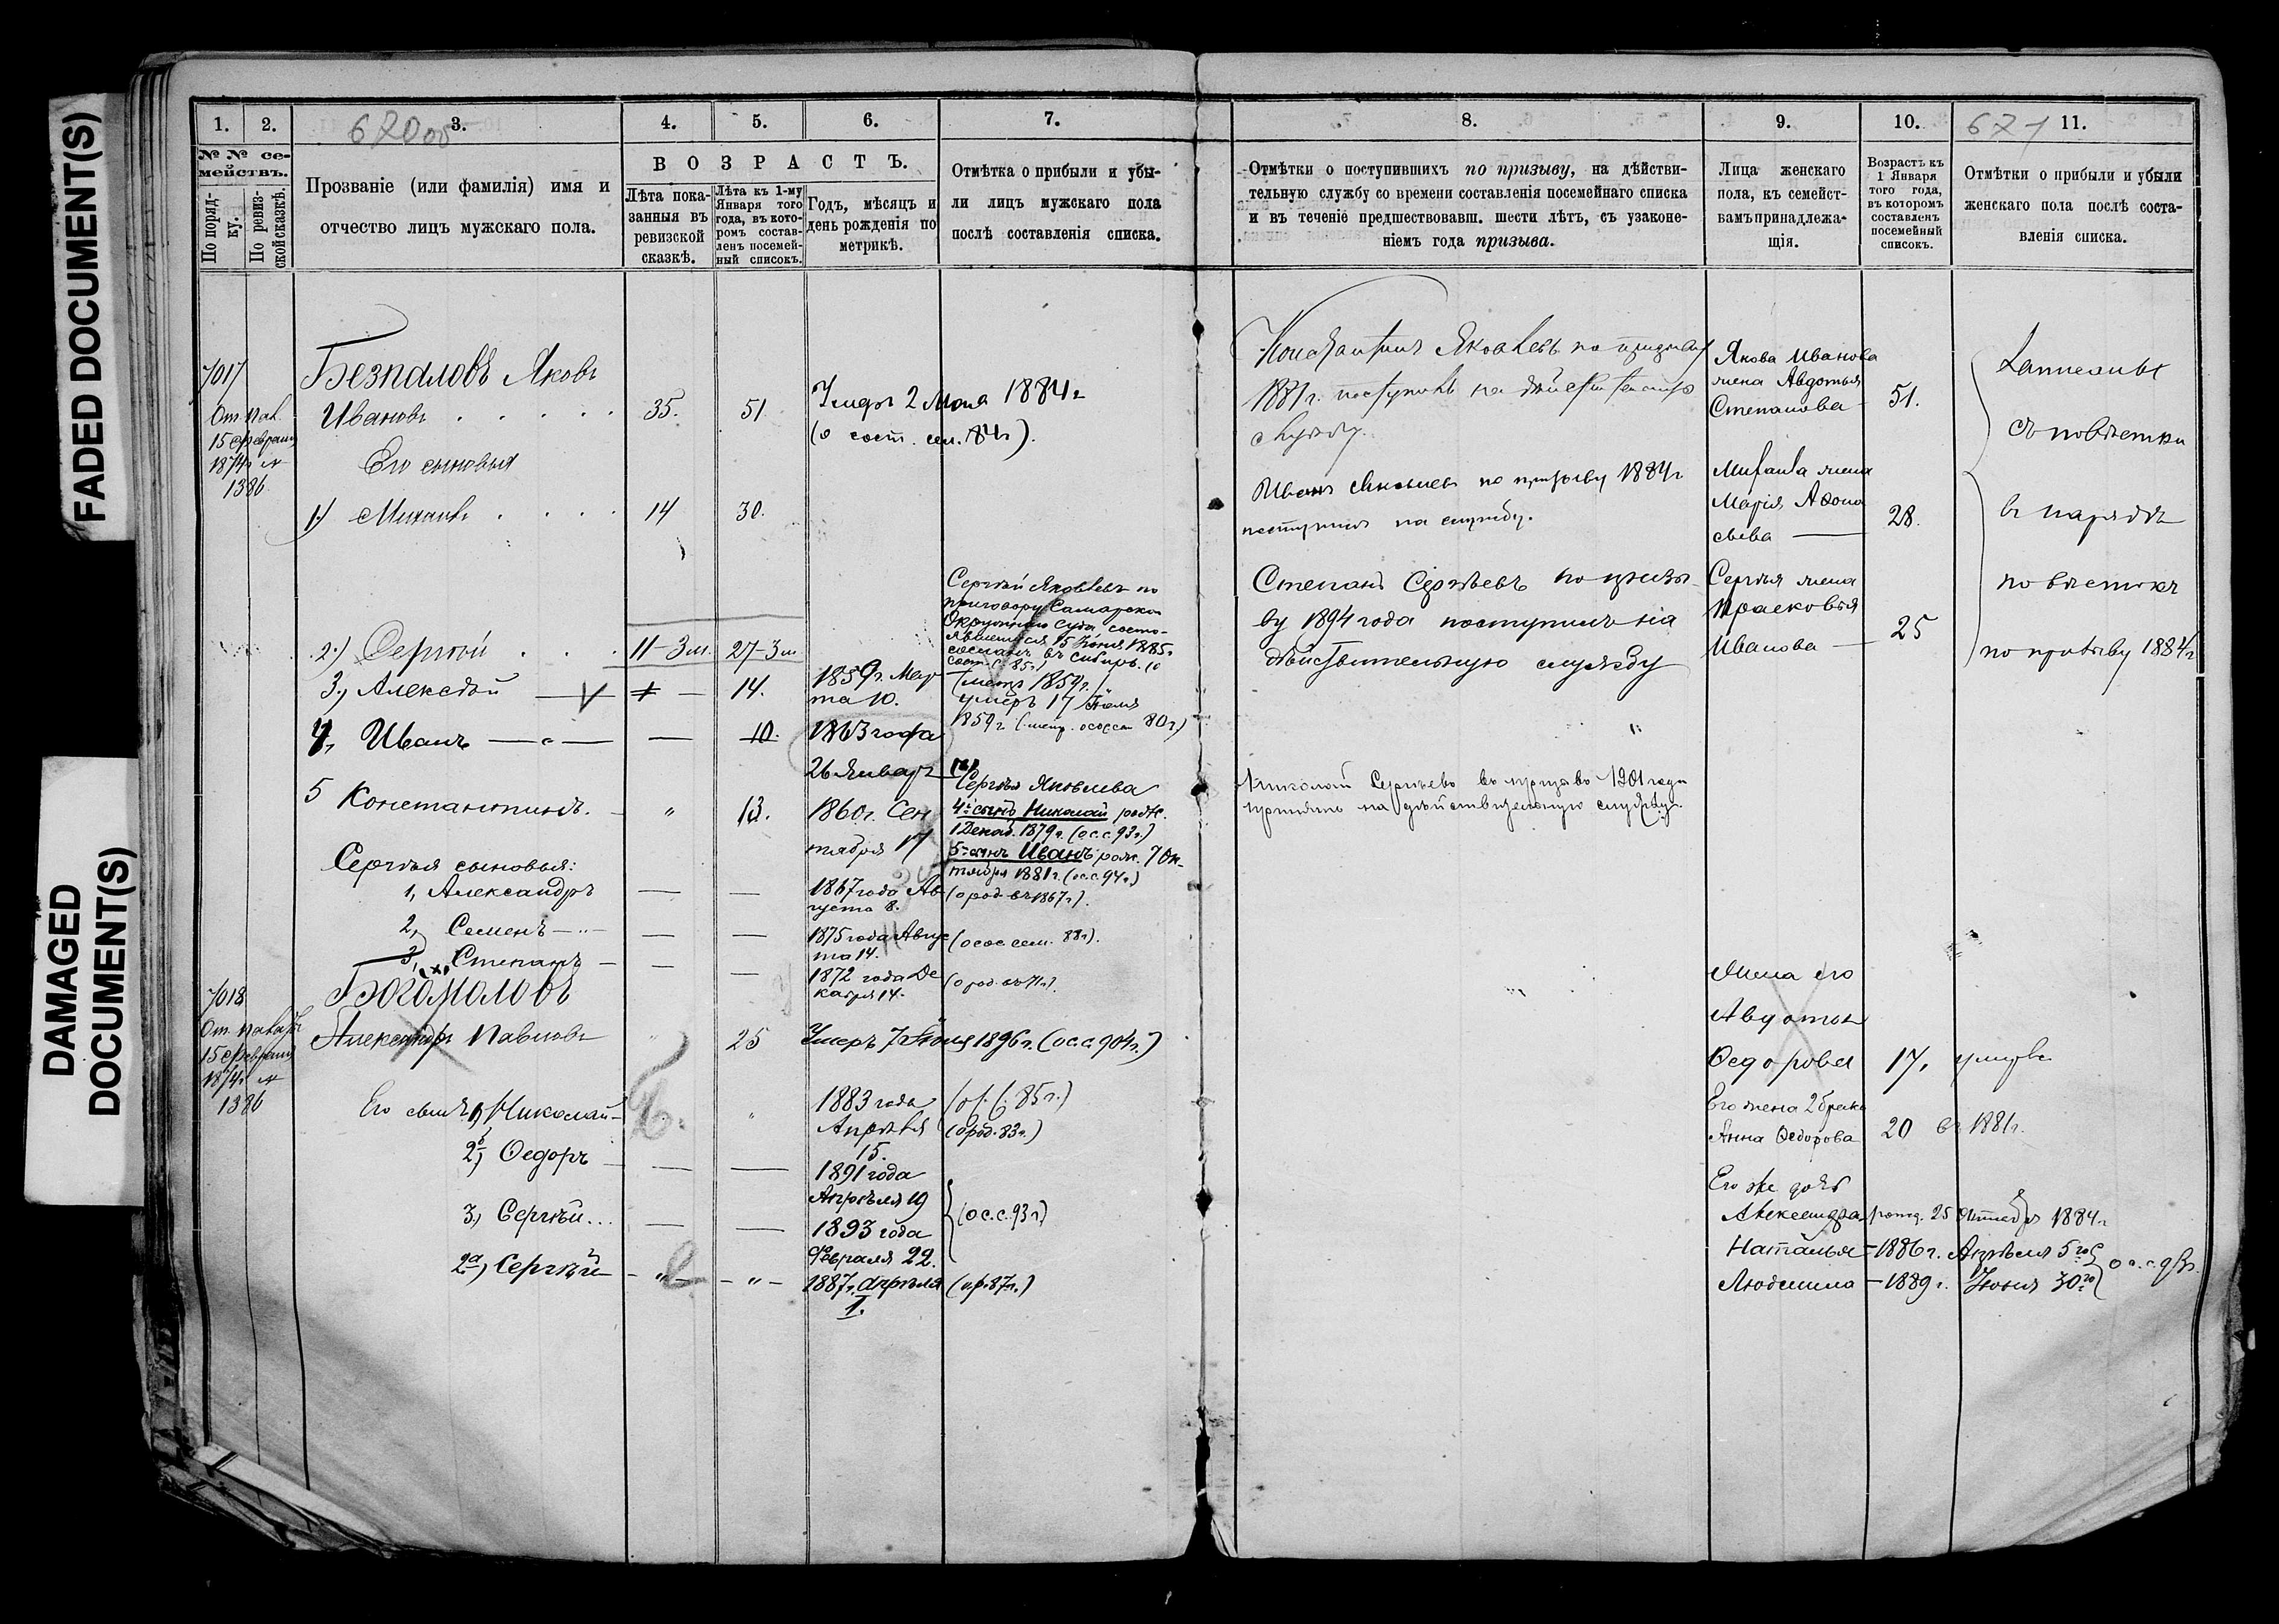 FADED DOCUMENT(S)
DAMAGED
DOCUMENT(S)
1.
2.
3.
670 об
4.
5.
6.
7.
№№ се-
мействъ.
По поряд-
ку.
По ревиз-
ской сказкѣ.
Прозваніе (или фамилія) имя и
отчество лицъ мужскаго пола.
ВОЗРАСТЪ.
Лѣта пока-
занныя въ
ревизской
сказкѣ.
Лѣта къ 1-му
Января того
года, въ кото-
ромъ состав-
ленъ посемей-
ный списокъ.
Годъ, мѣсяцъ и
день рожденія по
метрикѣ.
Отмѣтка о прибыли и убы-
ли лицъ мужскаго пола
послѣ составленія списка.
7017
От пал.
15 февраля
1874 г №
1386
Безпаловъ Яковъ
Ивановъ
35.
51
Умеръ 2 Мая 1884 г
(о сост. сем. 84 г).
Его сыновья
1) Михаилъ
14
30.
2) Сергѣй
11-3 м.
27-3 м
Сергѣй Яковлевъ по
приговору Самарскаго
Окружнаго Суда состо-
явшемуся 15 Іюня 1885 г
сосланъ въ Сибирь. (о
сост. с. 85 г.)
3) Алексѣй
14.
1859 г. Мар
та 10.
(метр 1859 г.)
умеръ 17 Іюля
1859 г (метр. о сост 80 г.)
4, Иванъ
10.
1863 года
26 Января
5 Константинъ.
"
13.
1860 г. Сен
тября 17
Сергѣя Яковлева
4й сынъ Николай родж.
1 Декаб. 1879 г. (о с.с. 93 г.)
5й сынъ Иванъ рож. 7 Ок-
тября 1881 г. (о с.с. 94 г.)
Сергѣя сыновья:
1, Александръ
1867 года Ав
густа 8.
(о род. въ 1867 г).
2, Семенъ
1875 года Авгус
та 14.
(о сос сем. 88 г).
3, Степанъ
1872 года Де
кабря 14.
7018
От палаты
15 февраля
1874 г №
1386
Богомоловъ
Александръ Павловъ
25
Умеръ 7 Іюня 1896 г. (о с.с 904 г.)
Его сынъ 1, Николай
"
1883 года
Апрѣля
15.
(о род. 83 г.)
2б) Ѳедоръ
1891 года
Апрѣля 19
3, Сергѣй...
1893 года
Февраля 22.
(о с.с. 93 г)
2а) Сергѣй
1887 г. Апрѣля
1.
(о р. 87 г.)
8.
9.
10.
671
11.
Отмѣтки о поступившихъ по призыву, на дѣйстви-
тельную службу со времени составленія посемейнаго списка
и въ теченіе предшествовавш. шести лѣтъ, съ узаконе-
ніемъ года призыва.
Лица женскаго
пола, къ семейст-
вамъ принадлежа-
щія.
Возрастъ къ
1 Января
того года,
въ которомъ
составленъ
посемейный
списокъ.
Отмѣтки о прибыли и убыли
женскаго пола послѣ соста-
вленія списка.
Константинъ Яковлевъ по призыву
1881 г. поступилъ на дѣйствительную
службу.
Иванъ Яковлевъ по призыву 1884 г
поступилъ на службу.
Степанъ Сергѣевъ по призы-
ву 1894 года поступилъ на
дѣйствительную службу
Николай Сергѣевъ въ призывъ 1901 года
принятъ на дѣйствительную службу.
Якова Иванова
жена Авдотья
Степанова
51.
Михаила жена
Марія Аѳона
сьева
28.
Сергѣя жена
Прасковья
Иванова
25
съ повѣстки
въ нарядъ
повѣстка
по призыву 1884 г
Жена его
Авдотья
Ѳедорова
17.
умерла
Его жена 2 брака
Анна Ѳедорова
20
въ 1881 г.
Его же дочь
Александра рожд. 25 Октября 1884 г
Наталья -1886 г. Апрѣля 5го
Людмила -1889 г. Іюня 30го
о с.с. 93 г.